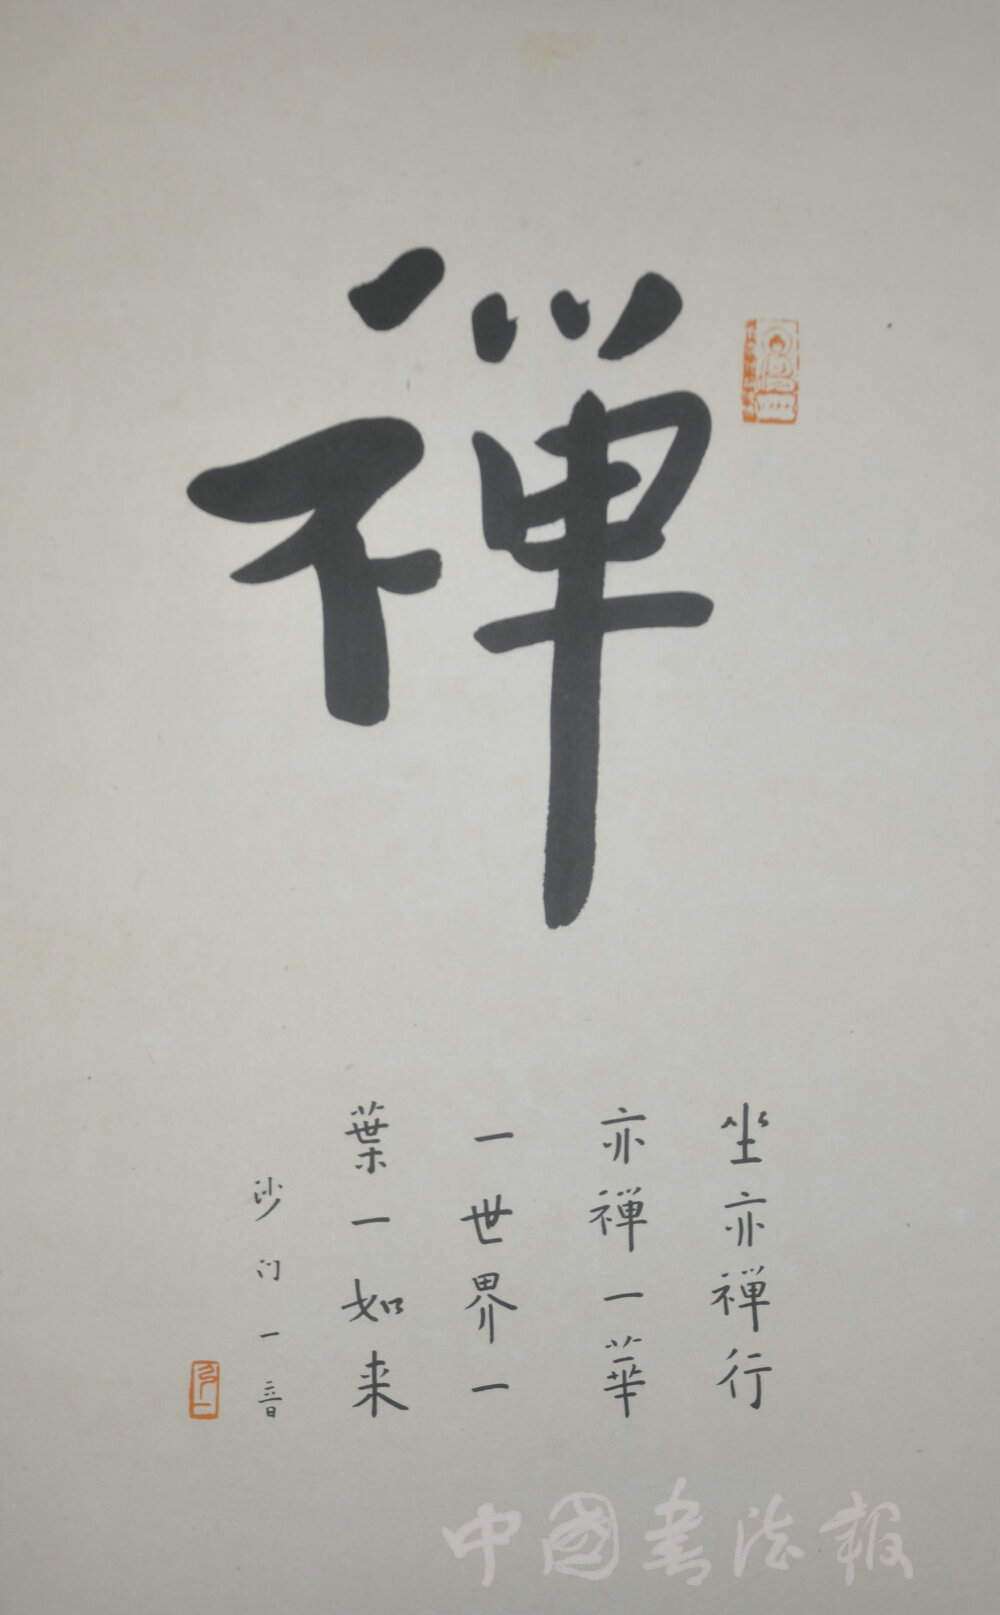 禅
坐亦禅行
亦禅一華
一世界一
葉一如来
沙门一音
中國书法报